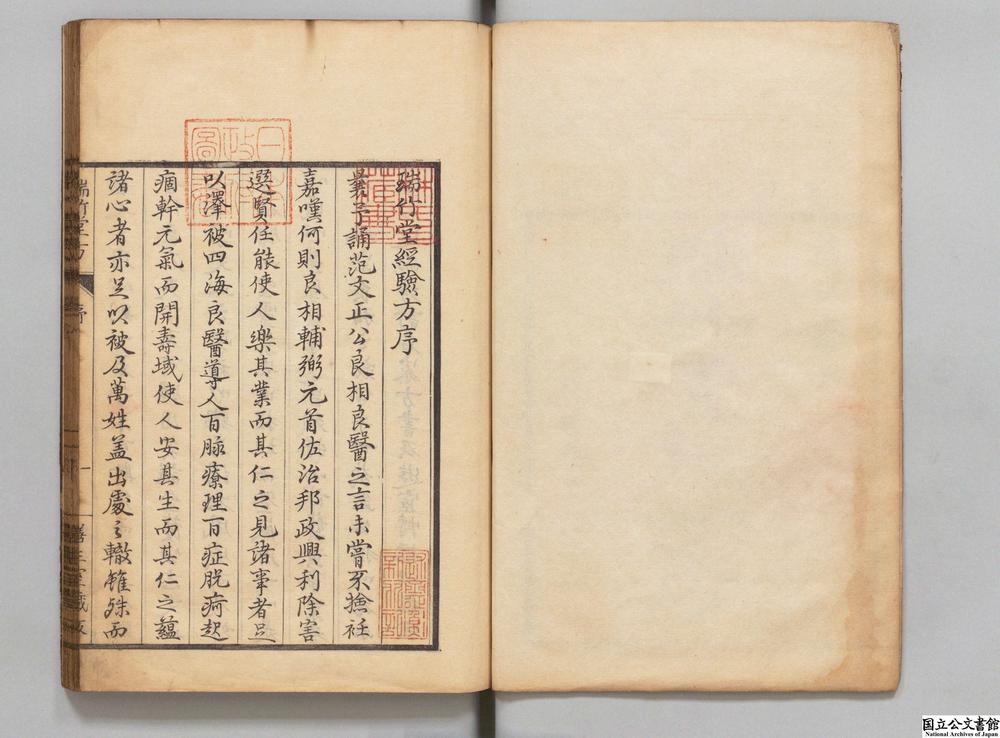 瑞竹堂經驗方序
曩予誦范文正公良相良醫之言未嘗不捨袵
嘉嘆何則良相輔弼元首佐治邦政興利除害
選賢任能使人樂其業而其仁之見諸事者足
以澤被四海良醫導人百脉療理百症脫痾起
痼幹元氣而開壽域使人安其生而其仁之蘊
諸心者亦足以被及萬姓盖出處之轍雖殊而
瑞竹堂方
序
国立公文書館
National Archives of Japan